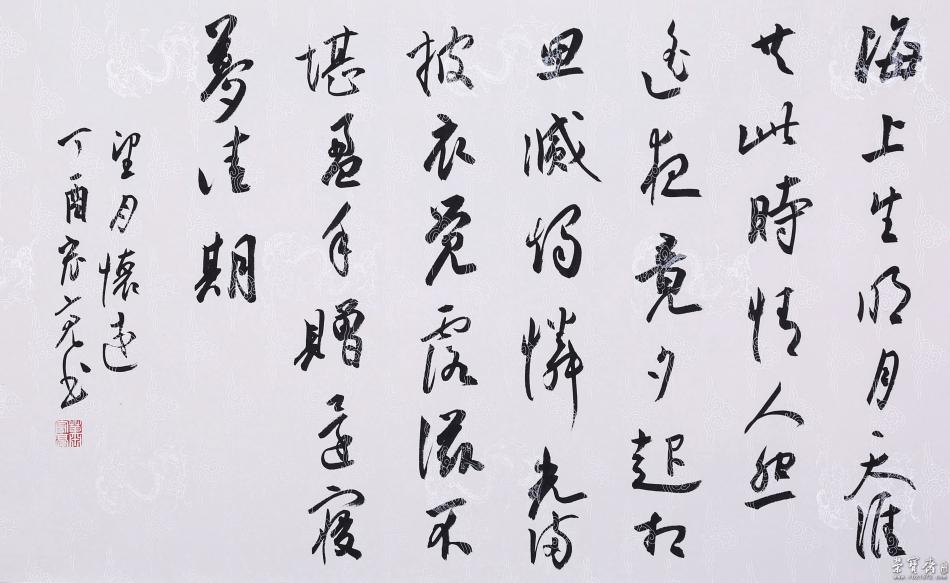 海上生明月天涯
共此時情人怨
遙夜竟夕起相
思滅燭憐光滿
披衣覺露滋不
堪盈手贈還寢
夢佳期
望月懷遠
丁酉亮书